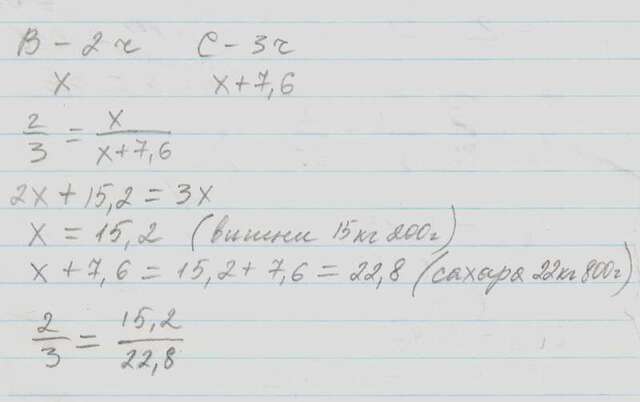 В – 2 ч С – 3 ч
x x+7,6
2/3 = x/(x+7,6)
2x + 15,2 = 3x
x = 15,2 (вишни 15кг 200г)
x + 7,6 = 15,2 + 7,6 = 22,8 (сахара 22кг 800г)
2/3 = 15,2/22,8